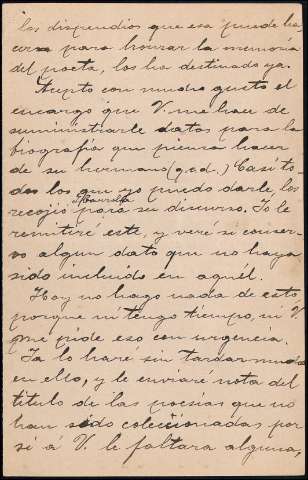 los dispendios que esa puede ha-
cerse para honrar la memoria
del poeta, los ha destinado ya.
Acepto con mucho gusto el
encargo que V. me hace de
suministrarle datos para la
biografia que piensa hacer
de su hermano (q.e.d.) Casi to-
dos los que yo puedo darle, los
recojió para su discurso. Yo le
remitiré este, y veré si conser-
vo algun dato que no haya
sido incluido en aquél.
Hoy no hago nada de esto
porque ni tengo tiempo, ni V.
me pide eso con urgencia.
Ya lo haré sin tardar mucho
en ello, y le enviaré nota del
titulo de las poesias que no
han sido coleccionadas por
si á V. le faltara alguna,